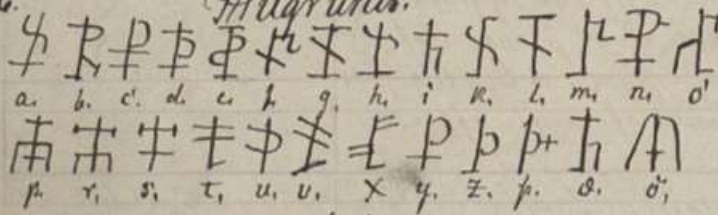 Hugrunir.
a. b. c. d. e. f. g. h. i k. l. m. n. o
p. r. s. t. u. v. x y. z. þ. ö.